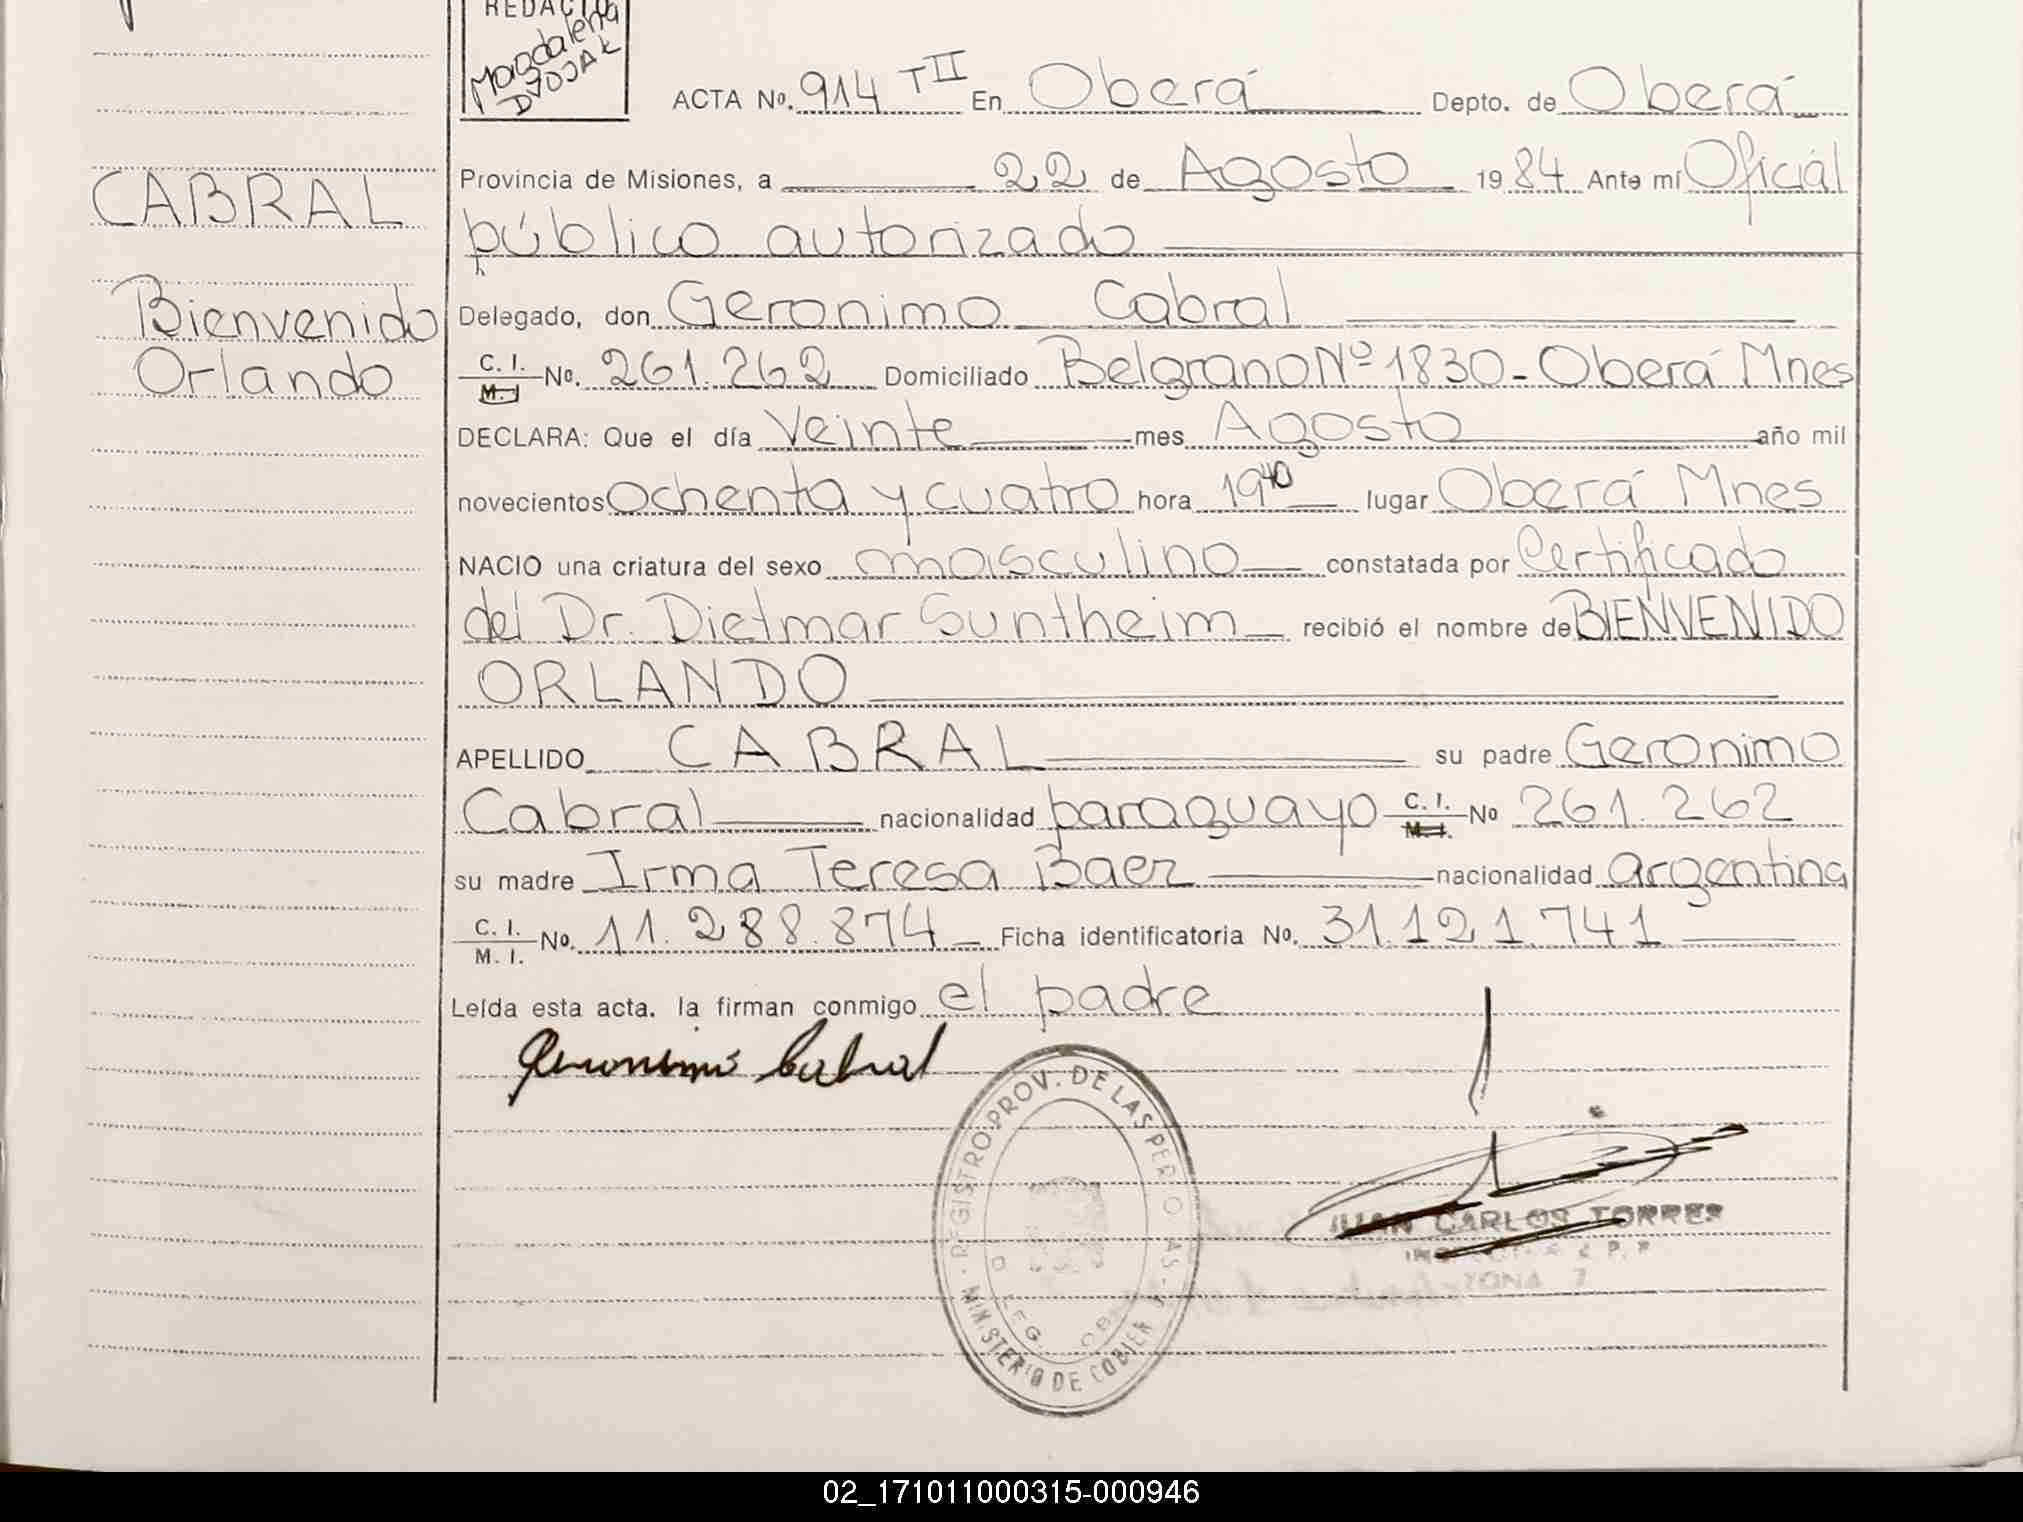 REDACTO
Magdalena
DYOJAK
ACTA No. 914 TII En Oberá Depto. de Oberá
CABRAL
Provincia de Misiones, a 22 de Agosto 1984 Ante mí Oficial
público autorizado
Bienvenido
Orlando
Delegado, don Geronimo Cabral
C. I. M. No. 261.262 Domiciliado Belgrano Nº 1830 - Oberá Mnes
DECLARA: Que el día Veinte mes Agosto año mil
novecientos ochenta y cuatro hora 19 40 lugar Oberá Mnes
NACIO una criatura del sexo masculino constatada por Certificado
del Dr. Dietmar Suntheim recibió el nombre de BIENVENIDO
ORLANDO
APELLIDO CABRAL su padre Geronimo
Cabral nacionalidad paraguayo C. I. M. I. No 261.262
su madre Irma Teresa Baez nacionalidad argentina
C. I. M. I. No. 11.288.874 Ficha identificatoria No. 31.121.741
Leída esta acta. la firman conmigo el padre
Geronimo Cabral
REGISTRO PROV. DE LAS PER
MINISTERIO DE GOBIER
DELEG.
JUAN CARLOS TORRES
ZONA 7
02_171011000315-000946